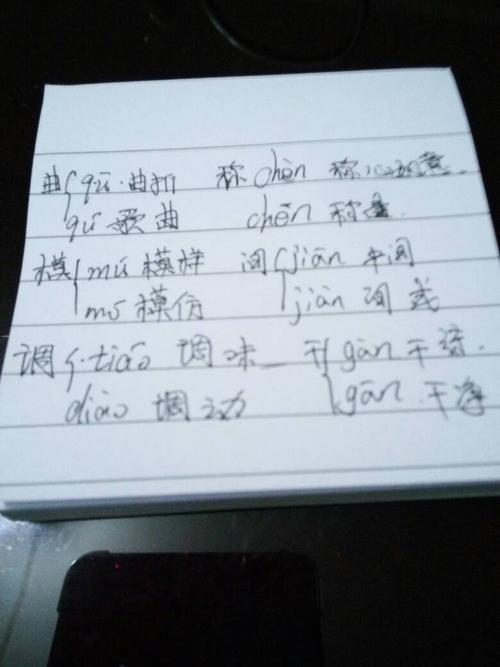 曲 qū 曲折 称 chèn 称心如意.
qǔ 歌曲 chēn 称量
模 mú 模样 间 jiān 中间
mó 模仿 jiàn 间或
调 tiáo 调味 干 gàn 干活.
diào 调动 gān 干净